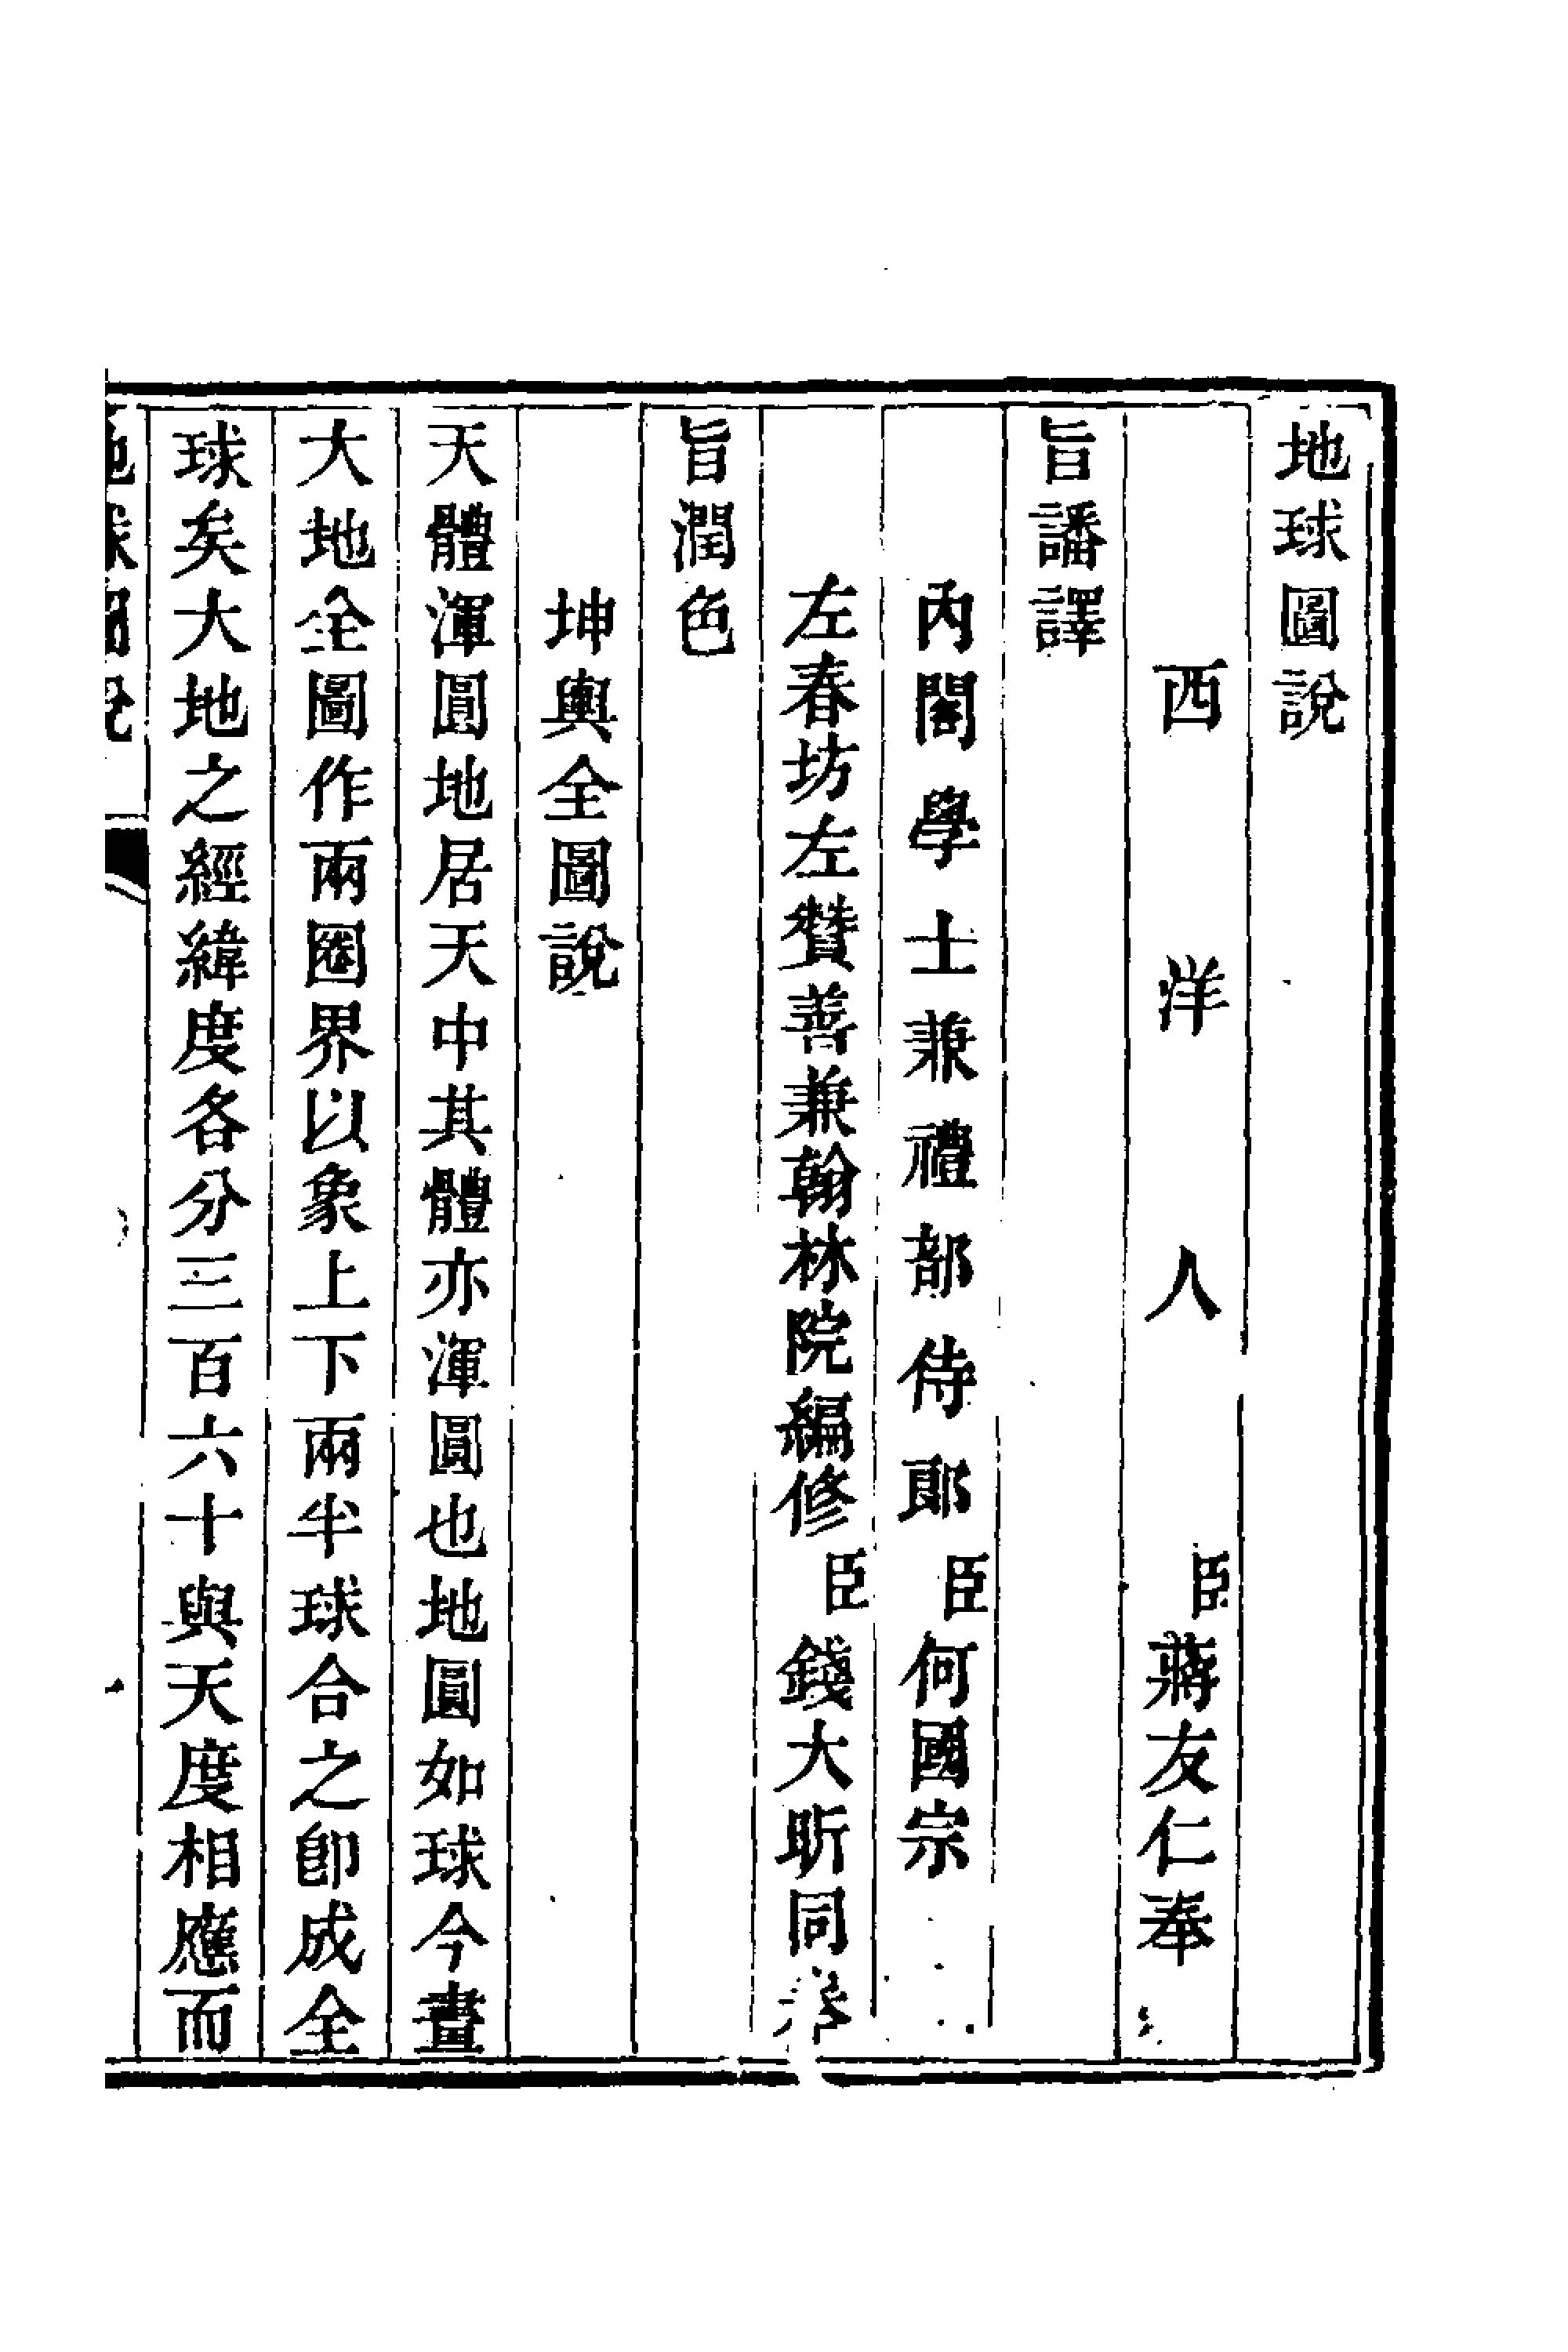 地球圖說
西洋人臣蔣友仁奉
旨譒譯
內閣學士兼禮部侍郎臣何國宗
左春坊左贊善兼翰林院編修臣錢大昕同奉
旨潤色
坤輿全圖說
天體渾圓地居天中其體亦渾圓也地圓如球今畫
大地全圖作兩圈界以象上下兩半球合之卽成全
球矣大地之經緯度各分三百六十與天度相應而
地球圖說 一